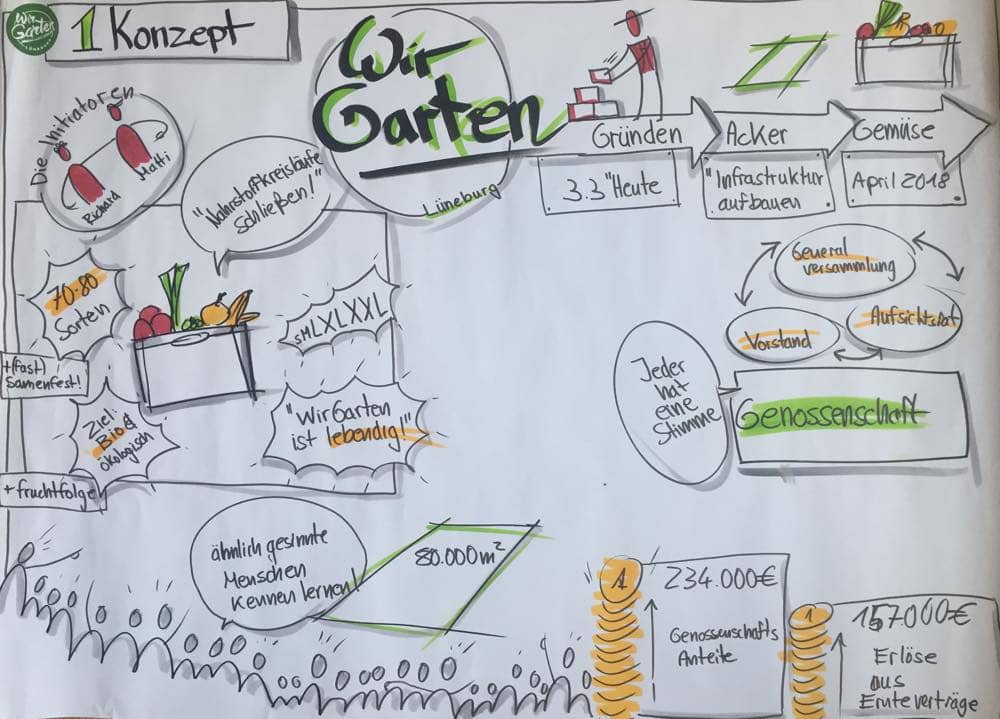 Wir
Garten
LÜNEBURG
1 Konzept
Wir
Garten
Lüneburg
Gründen
Acker
Gemüse
3.3 "Heute
"Infrastruktur
aufbauen
April 2018
Die Initiatoren
Richard
Matti
"Nährstoffkreisläufe
schließen!"
70-80
Sorten
+(fast)
Samenfest!
Ziel:
Bio &
ökologisch
+ fruchtfolge
SMLXLXXL
"WirGarten
ist lebendig!"
General
versammlung
Vorstand
Aufsichtsrat
Jeder
hat
eine
Stimme
Genossenschaft
ähnlich gesinnte
Menschen
kennen lernen!
80.000m²
1
234.000€
Genossenschafts
Anteile
1
157000€
Erlöse
aus
Ernteverträge